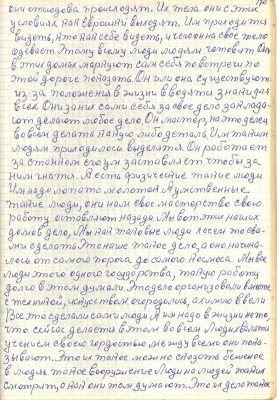 они отсюдова происходят. Их тела они с этих
условиях как евро выходят. Им приходится
видеть, что на себе видеть, и человека свое тело
одевает. Этому всему люди людям готовит. Он
в этих домах маркуют сам себя по встречи по
этой дороге попадать. Он или она существуют
из-за положения в жизни вводят знания для
всех. Они за них сами себя за свое дело
делают любое дело. Он мастер, на это делец
во всем делать какую либо деталь. Им таким
людям приходилось выделятся. Он работает
за станком его ум заставляет чтобы за
ним гнатся. А есть физические такие люди
Им надо лопато молоток. А умственные
такие люди, они нам свое мастерство свою
работу оставляют назади. Мы вот эти наших
домов дело, Мы как таковые люди хотем то сва-
ми сделать. Это наше такое дело, а оно нача-
лось от самого порога до самого носа. Мы все
люди этого одного государства, такую работу
долго в этом думали. Это дело организовали вместе
с техникой, искусством огородились, а химию ввели
Все это сделали сами люди. Им надо в жизни нето,
что сейчас делается в этом во всем. Люди являтся
учением своею гордостью между всеми они пока-
зывают. Это их такое можно сказать военное
в людях такое вооружение. Люди на людей такими
смотрит, а как они там думают. Это их дело такое